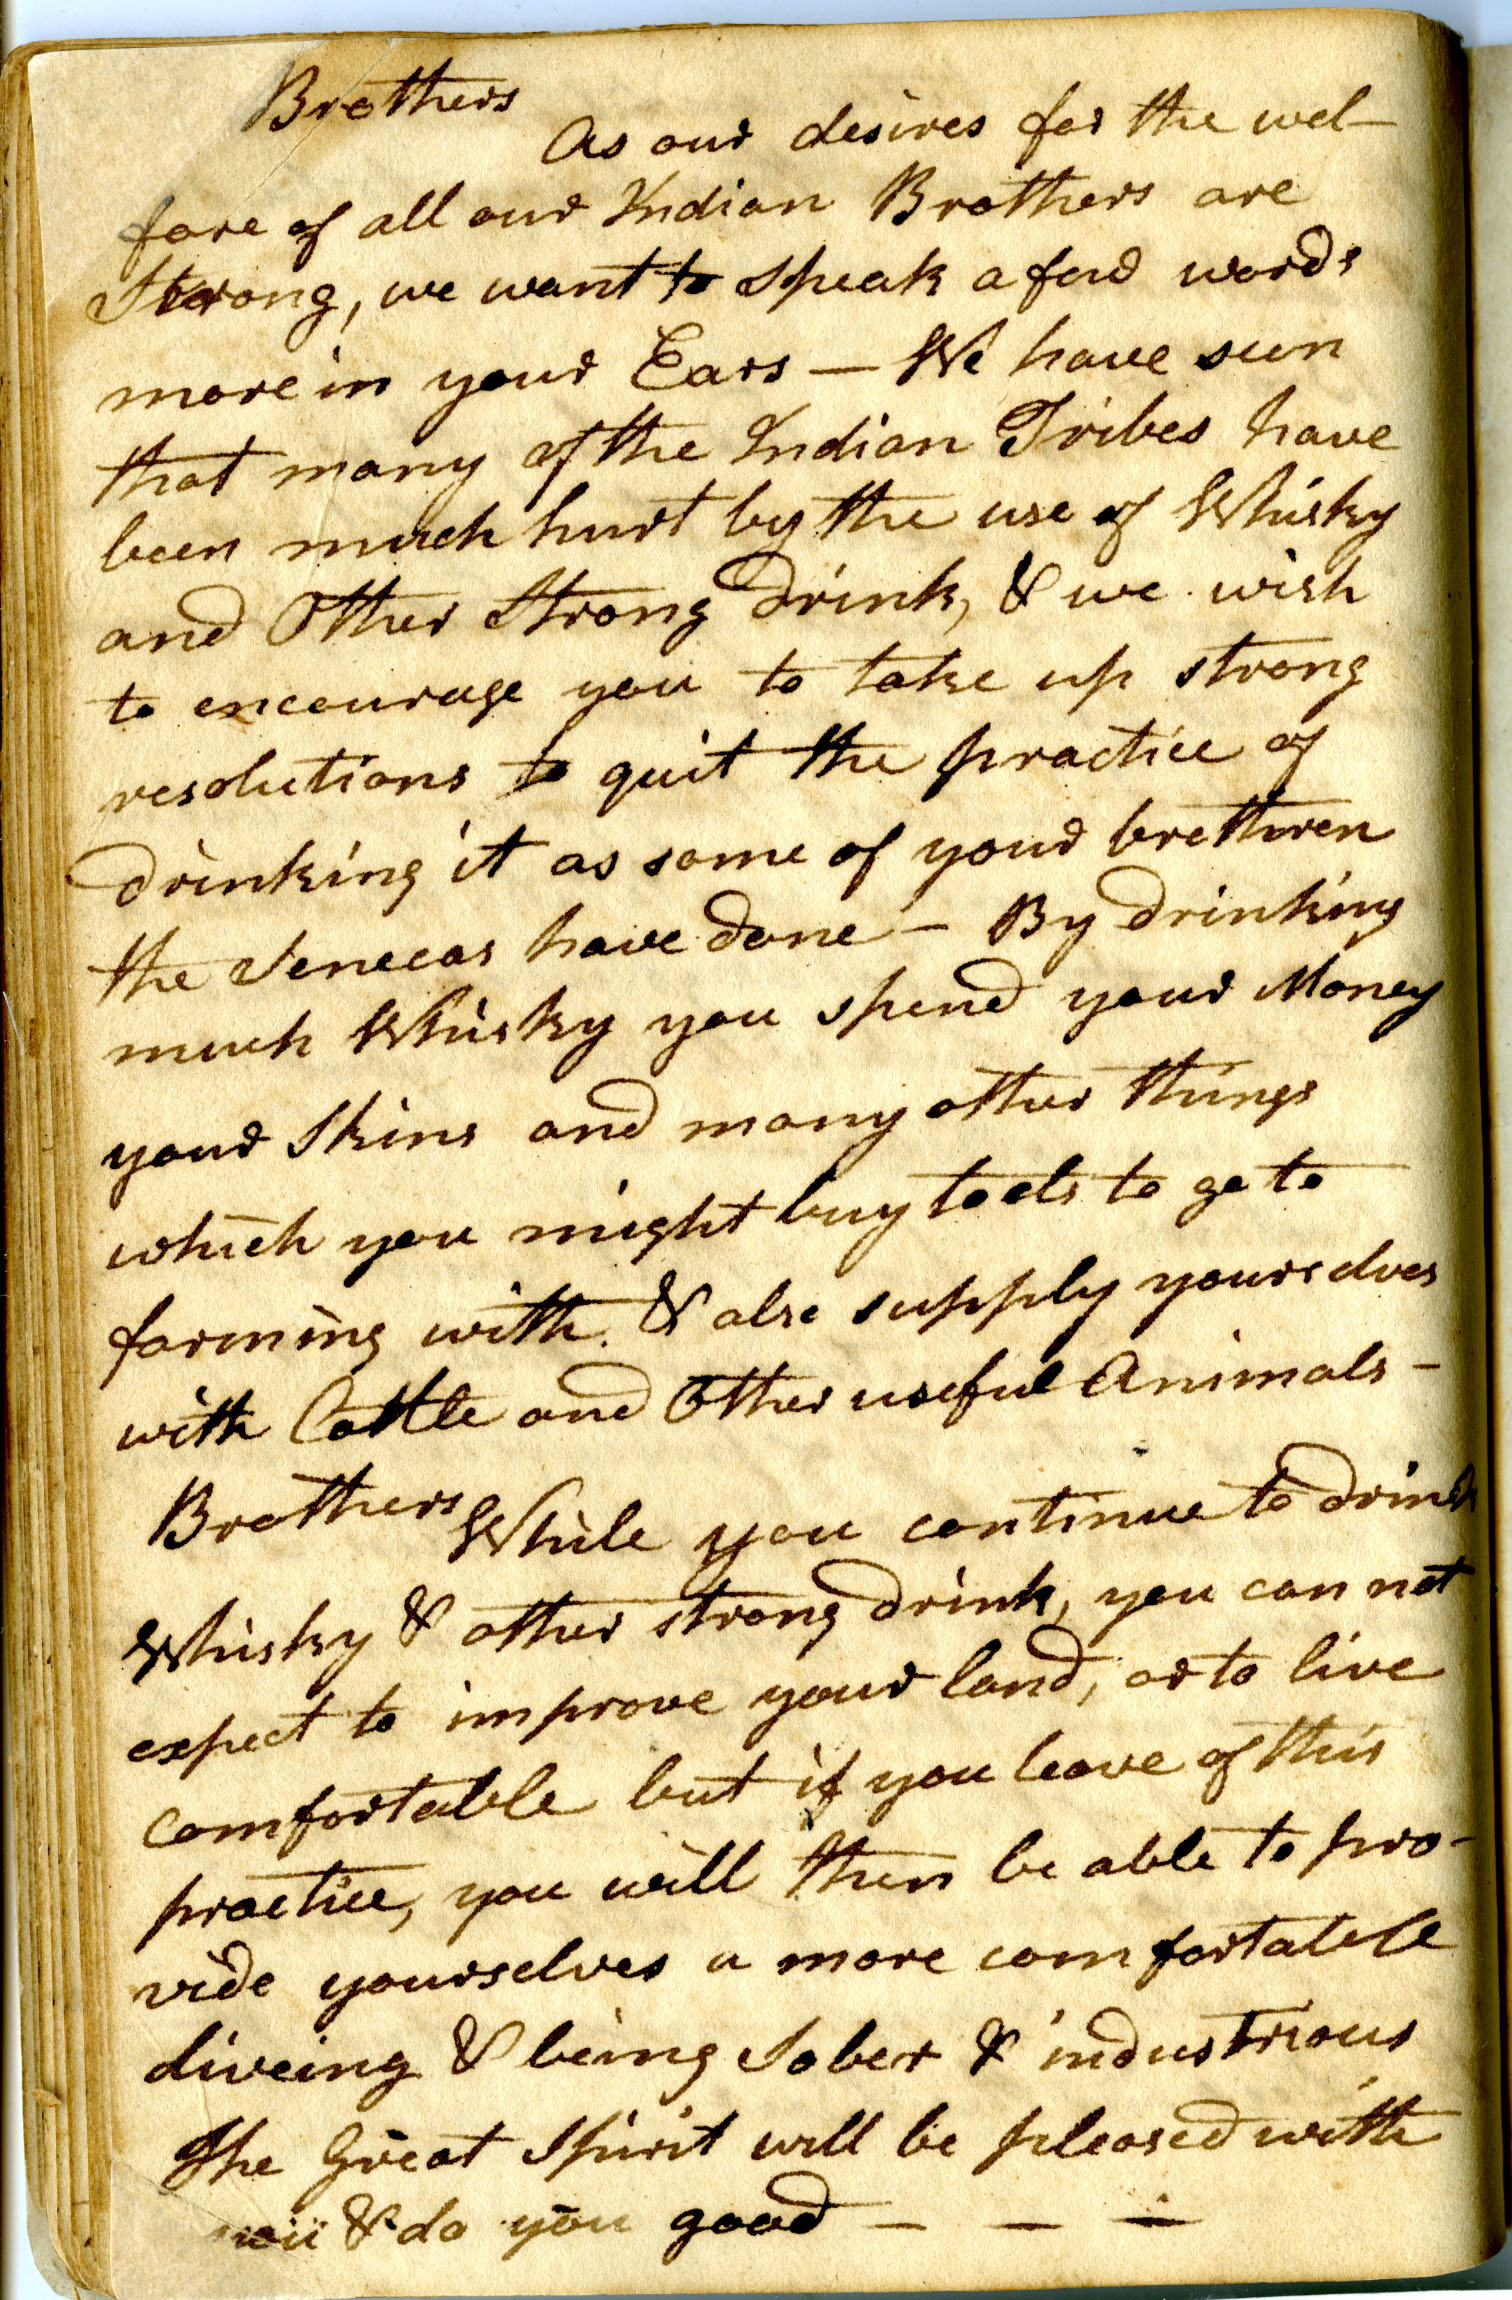 Brothers
As our desires for the wel-
fare of all our Indian Brothers are
Strong, we want to speak a few words
more in your Ears — We have seen
that many of the Indian Tribes have
been much hurt by the use of Whisky
and Other Strong drink, & we wish
to encourage you to take up strong
resolutions to quit the practice of
drinking it as some of your brethren
the Senecas have done — By drinking
much Whisky you spend your Money
your Skins and many other things
which you might buy tools to go to
farming with. & also supply yourselves
with Cattle and Other useful Animals —
Brothers While you continue to drink
Whisky & other strong drink, you can not
expect to improve your land, or to live
comfortable but if you leave of this
practice, you will then be able to pro-
vide yourselves a more comfortable
liveing & being Sober & industrious
The Great Spirit will be pleased with
you & do you good — — —